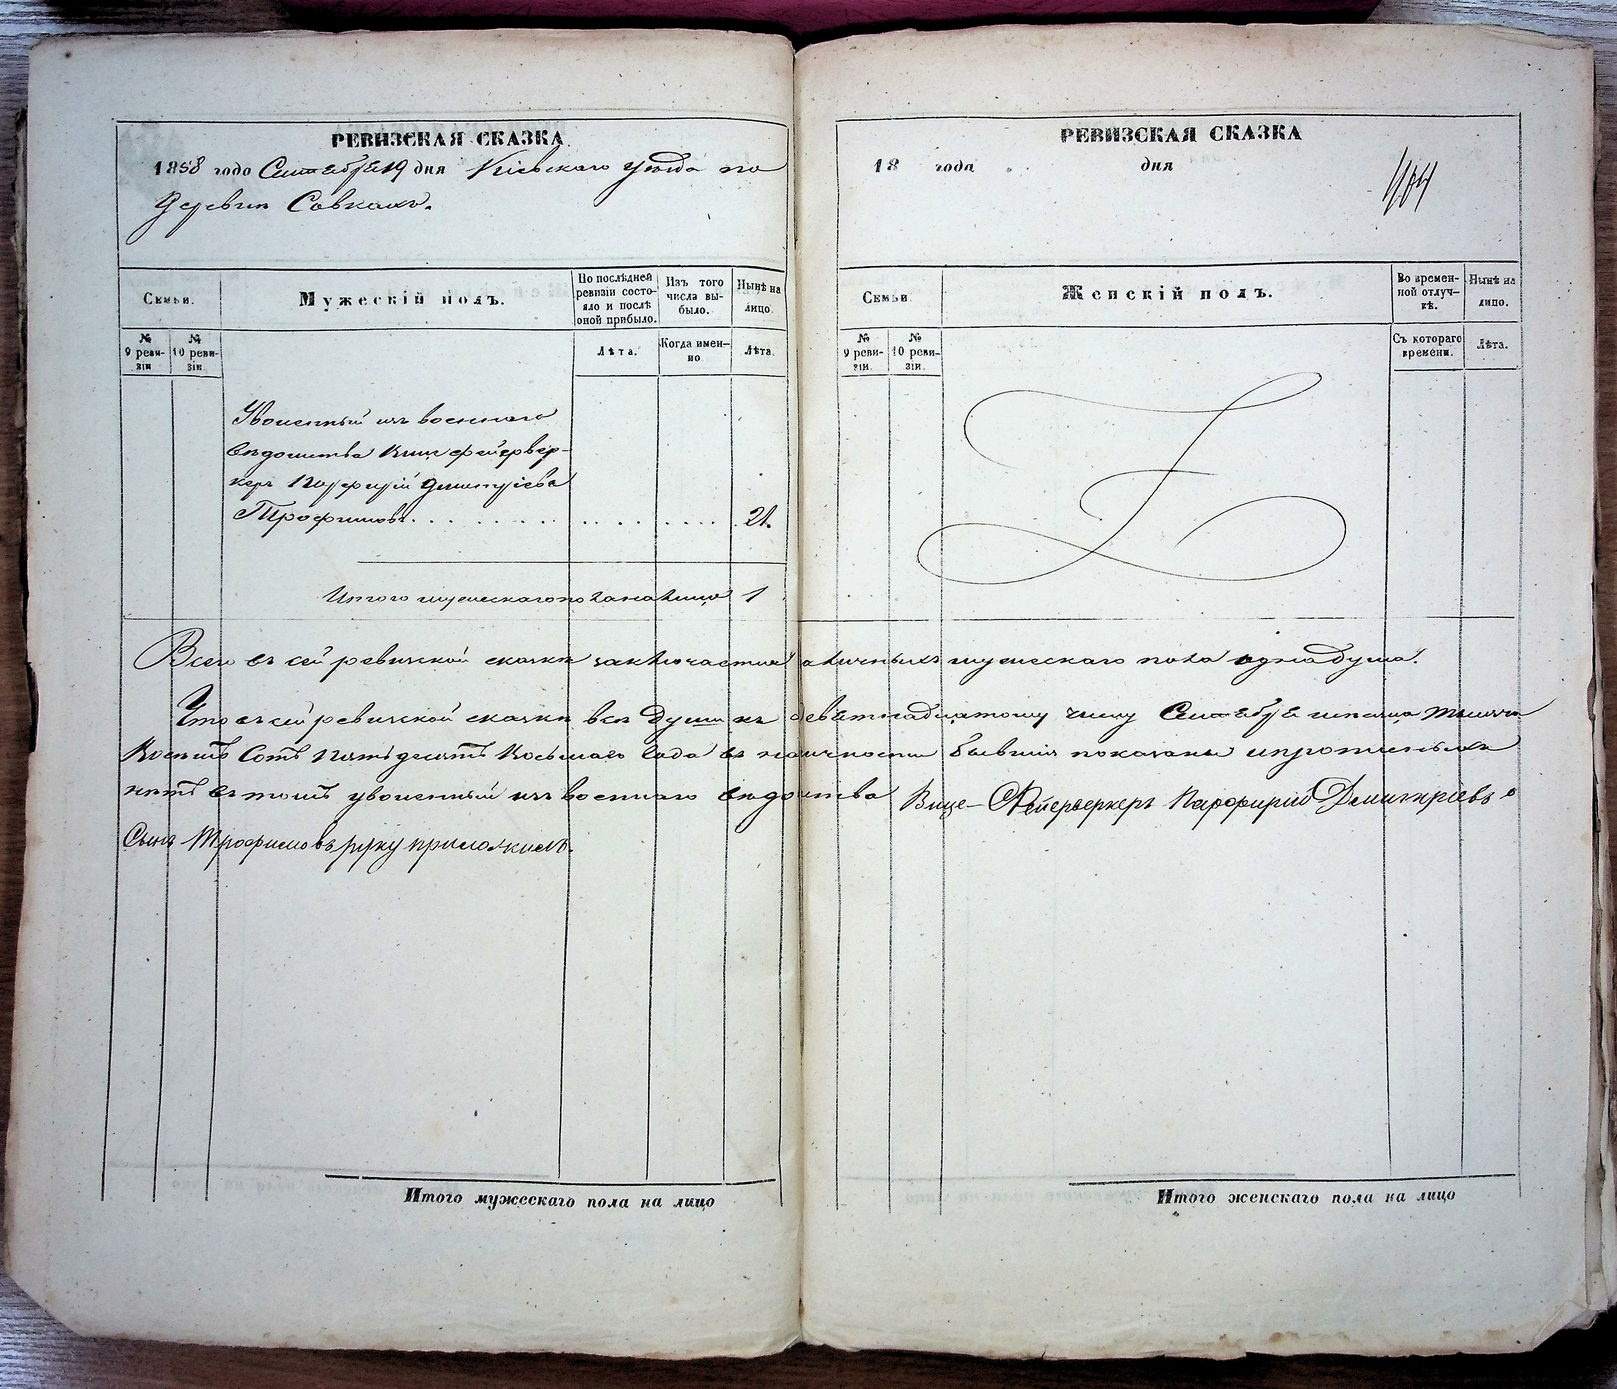 РЕВИЗСКАЯ СКАЗКА
1858 года Сентября 19 дня Кіевскаго уѣзда по
деревни Совкахъ.
Семьи.
Мужескій полъ.
По послѣдней ревизіи состояло и послѣ оной прибыло.
Изъ того числа выбыло.
Нынѣ на лицо.
№ 9 ревизіи
№ 10 ревизіи.
Лѣта.
Когда именно
Лѣта.
Уволенный изъ военнаго
вѣдомства вице фейервер-
керъ Порфирій Дмитріевъ
Трофимовъ. . . . . . . . . . . . . . . 21.
Итого мужескаго пола на лицо 1
РЕВИЗСКАЯ СКАЗКА
18 года дня
Семьи
Женскій полъ.
Во временной отлучкѣ.
Нынѣ на лицо.
№ 9 ревизіи.
№ 10 ревизіи.
Съ котораго времени.
Лѣта.
Всего въ сей ревизской сказкѣ заключается наличныхъ мужескаго пола одна душа.
Что въ сей ревизской сказкѣ всѣ души къ девятнадцатому числу Сентября мѣсяца тысяча
восемь сотъ пятьдесятъ восьмаго года въ наличности бывшія показаны и прописныхъ
нѣтъ въ томъ уволенный изъ военнаго вѣдомства Вице-Фейерверкеръ Парфирий Демитріевъ
Сынъ Трофимовъ руку приложилъ.
Итого мужескаго пола на лицо
Итого женскаго пола на лицо